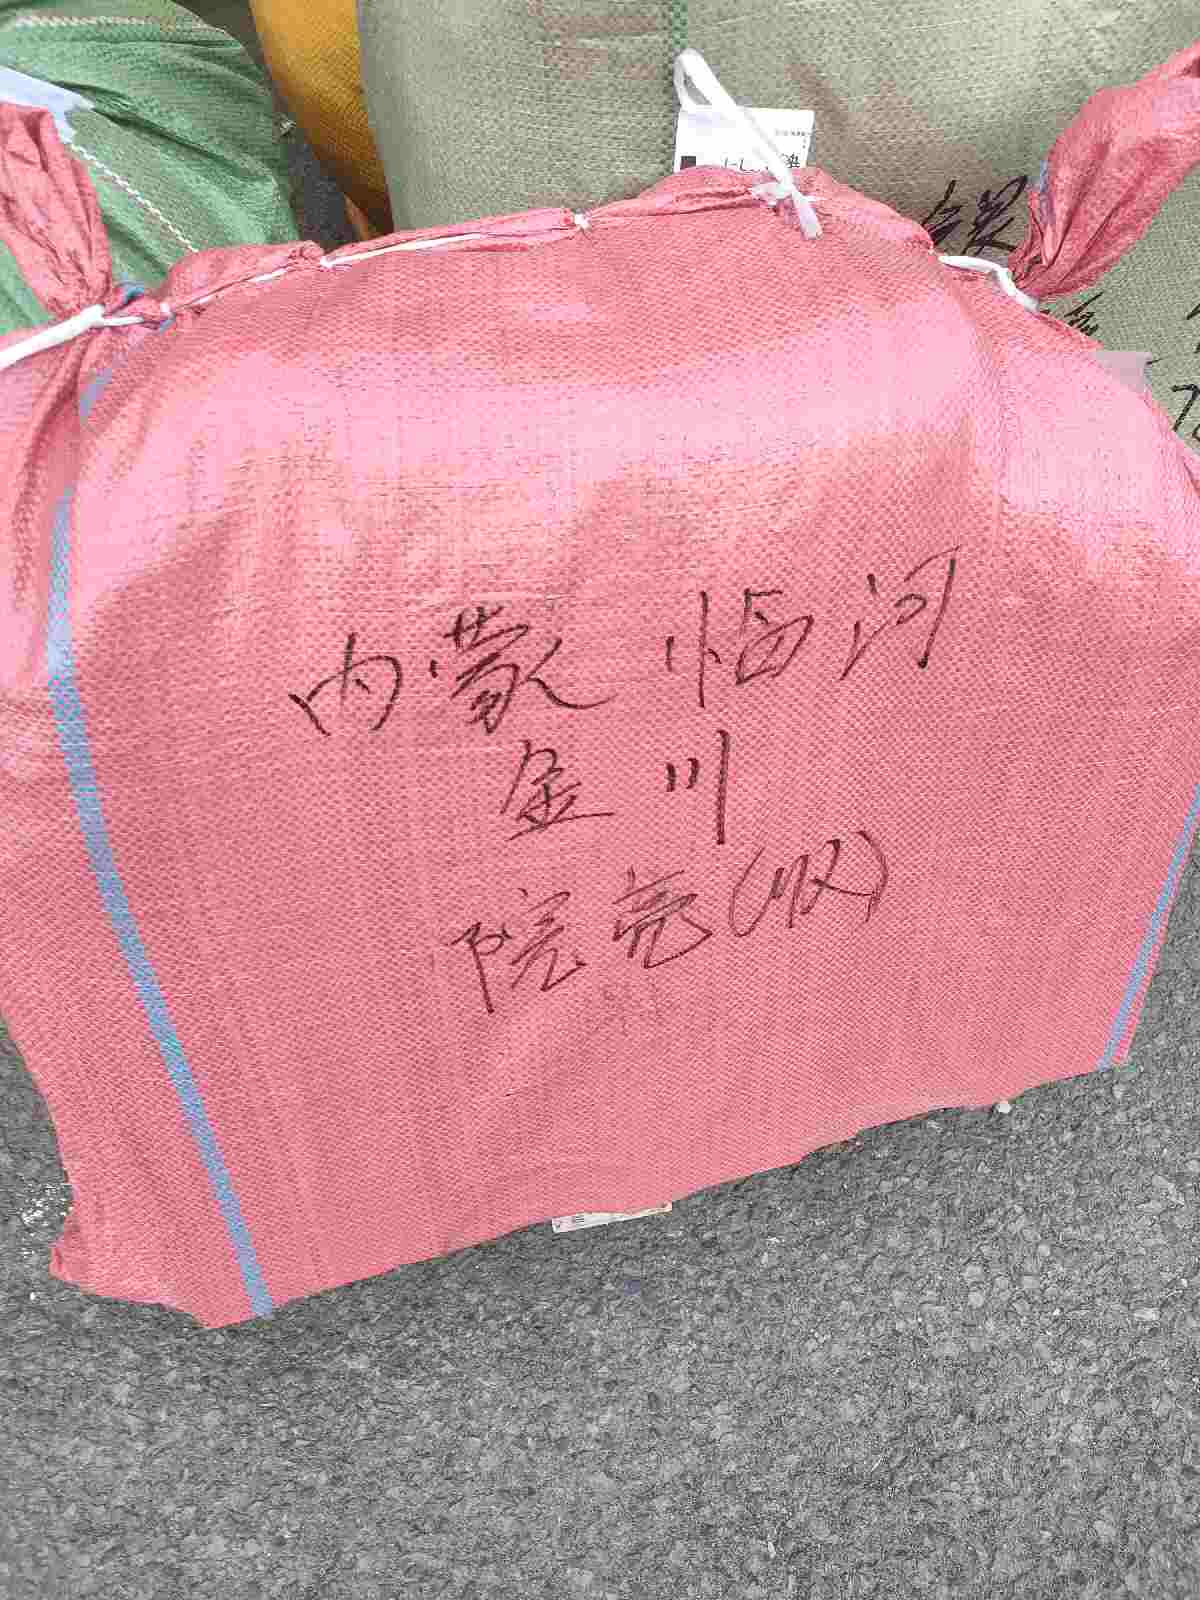 内蒙 临河
金川
院亮(收)